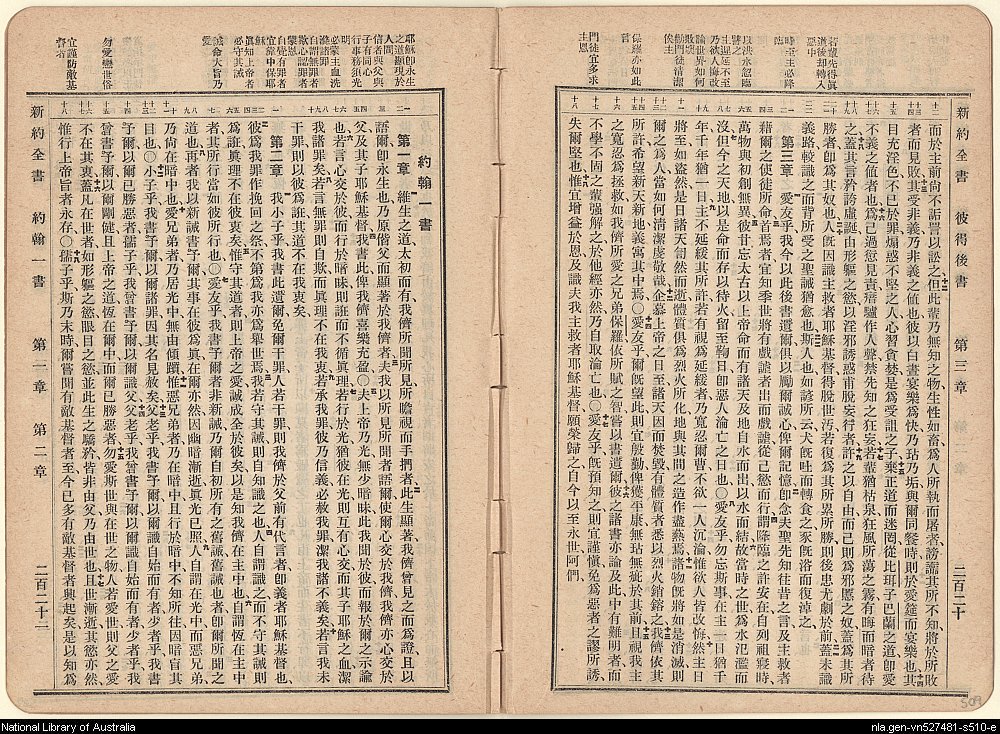 新約全書 彼得後書 第三章 二百二十
若輩先得眞
道後却轉入
惡中
時至主必降
臨
以洪水忽臨
譬之
主遲延不至
乃欲人悔改
論世界如何
敗壞
勸門徒清潔
俟主
保羅亦如此
言
門徒宜多求
主恩
而於主前尚不詬詈以訟之但此輩乃無知之物生性如畜爲人所執而屠者謗讟其所不知將於所敗
者而見敗其受非義乃非義之値也彼以白晝宴樂爲快乃玷乃垢與爾同餐時則於愛筵而宴樂也其
目充淫色不已於罪煽惑不堅之人心習貪婪是爲受詛之子棄正道而迷罔從比珥子巴蘭之道卽愛
不義之値者也爲己過愆見責瘖驢作人聲禁先知之狂妄若輩猶枯泉狂風所蕩之霧有晦而暗者待
之蓋其言矜誇虛誕由形軀之慾以淫邪誘惑甫脫妄行者許之以自由而己則爲邪慝之奴蓋爲其所
勝者卽爲其奴也人旣因識主救者耶穌基督得脫世汚若復爲其所累所勝則後患尤劇於前蓋未識
義路較識之而背所受之聖誡猶愈也斯人也如諺所云犬旣吐而轉食之豕旣浴而復淖之
第三章 愛友乎我今以此後書遺爾俱以勵爾誠心俾爾記憶卽念夫聖先知往昔之言及主救者
藉爾之使徒所命首焉者宜知季世將有戲謔者出而戲謔從己慾而行謂降臨之許安在自列祖寢時
萬物與初創無異彼甘忘太古以上帝命而有諸天及地自水而出以水而結故當時之世爲水氾濫而
沒但今之天地以是命而存以待火留至鞫日卽惡人淪亡之日也〇愛友乎勿忘斯事在主一日猶千
年千年猶一日主不延緩其所許若有視爲延緩者乃寬忍爾曹不欲一人沉淪惟欲人皆改悔然主日
將至如盜然是日諸天訇然而逝體質俱爲烈火所化地與其間之造作盡爇焉諸物旣將如是消滅則
爾之爲人當如何清潔虔敬哉企慕上帝之日至諸天因而焚毀有體質者悉以烈火銷鎔之我儕依其
所許希望新天新地義寓其中焉〇愛友乎爾旣望此則宜殷勤俾獲平康無玷無疵於其前且視我主
之寬忍爲拯救如我儕所愛之兄弟保羅依所賦之智嘗以書遺爾彼之諸書亦論及此中有難明者而
不學不固之輩强解之於他經亦然乃自取淪亡也〇愛友乎旣預知之則宜謹愼免爲惡者之謬所誘
失爾堅也惟宜增益於恩及識夫我主救者耶穌基督願榮歸之自今以至永世阿們
耶穌卽永生
之道顯現於
人間
信者與父與
子有同心
行事務須光
明
必蒙主血洗
滌諸罪
自謂無罪者
欺心認罪者
蒙恩
自覺有罪者
宜靠中保耶
穌
眞知上帝者
必守其誡
誡命大旨乃
愛
勿愛戀世俗
宜謹防敵基
督者
約翰一書
第一章 維生之道太初而有我儕所聞所見所瞻視而手捫者此生顯著我儕曾見之而爲證且以
語爾卽永生也乃原偕父而顯著於我儕者夫我以所見所聞者語爾使爾心交於我儕我儕亦心交於
父及其子耶穌基督我書此俾我儕喜樂充盈〇夫上帝乃光無少暗昧此我聞於彼而報於爾之示諭
也若言心交於彼而行於暗昧則誑而不循眞理若行於光猶彼在光則互有心交而其子耶穌之血潔
我諸罪矣若言無罪則自欺而眞理不在我衷若承我罪彼乃信義必赦我罪潔我諸不義矣若言我未
干罪則以彼爲誑其道不在我衷矣
第二章 我小子乎我書此遺爾免爾干罪人若干罪則我儕於父前有代言者卽義者耶穌基督也
彼爲我罪作挽回之祭不第爲我亦爲舉世焉我若守其誡則自知識之也人自謂識之而不守其誡則
爲誑眞理不在彼衷矣惟守其道者則上帝之愛誠成全於彼矣以是知我儕在主中也自謂恆在主中
者其所行當如彼所行也〇愛友乎我書予爾者非新誡乃爾自初所有之舊誡舊誡也者卽爾所聞之
道也再者我以新誡書予爾其事在彼爲眞在爾亦然因幽暗漸逝眞光已照人自謂在光中而惡兄弟
乃尚在暗中也愛兄弟者乃居光中無由傾躓惟惡兄弟者乃在暗中且行於暗中不知所往因暗盲其
目也〇小子乎我書予爾以爾諸罪因其名見赦矣父老乎我書予爾以爾識自始而有者少者乎我書
予爾以爾已勝惡者孺子乎我曾書予爾以爾識父父老乎我曾書予爾以爾識自始而有者少者乎我
曾書予爾以爾剛健且上帝之道恆在爾中而爾已勝惡者勿愛斯世與在世之物人若愛世則父之愛
不在其衷蓋凡在世者如形軀之慾眼目之慾並此生之驕矜皆非由父乃由世也且世漸逝其慾亦然
惟行上帝旨者永存〇孺子乎斯乃末時爾嘗聞有敵基督者至今已多有敵基督者興起矣是以知爲
新約全書 約翰一書 第一章 第二章 二百二十二
509
National Library of Australia
nla.gen-vn527481-s510-e